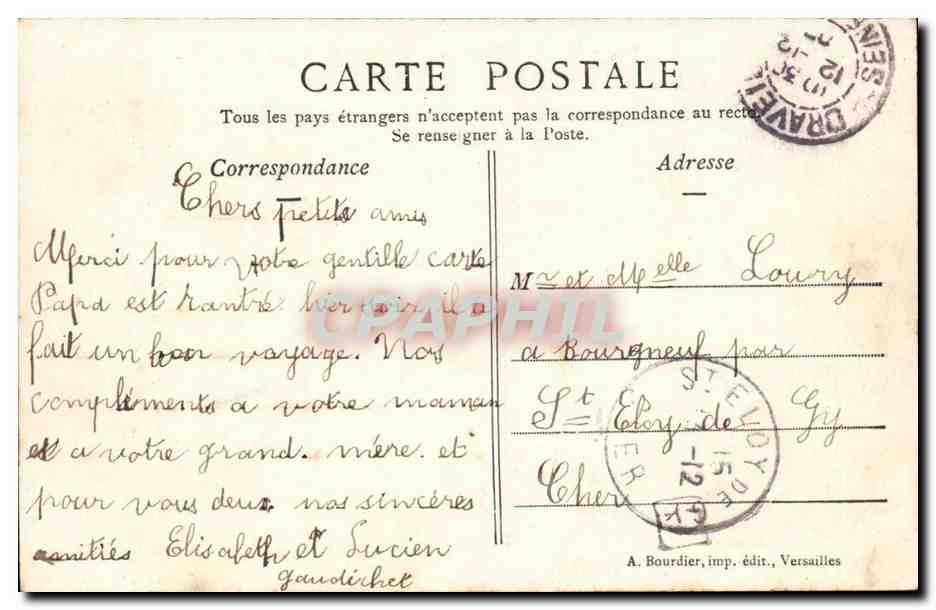 CARTE POSTALE
Tous les pays étrangers n'acceptent pas la correspondance au recto.
Se renseigner à la Poste.
Correspondance
Chers petits amis
Merci pour votre gentille carte
Papa est rantré hier soir il a
fait un bon voyage. Nos
compliments a votre maman
et a votre grand. mère. et
pour vous deux. nos sincères
amitiés Elisabeth et Lucien
Adresse
Mr et Melle Loury
a Bourgneuf par
St Eloy de Gy
Cher
A. Bourdier, imp. édit., Versailles
DRAVEIL
12
-12
ST ELOY DE GY
CHER
15
-12
CPAPHIL